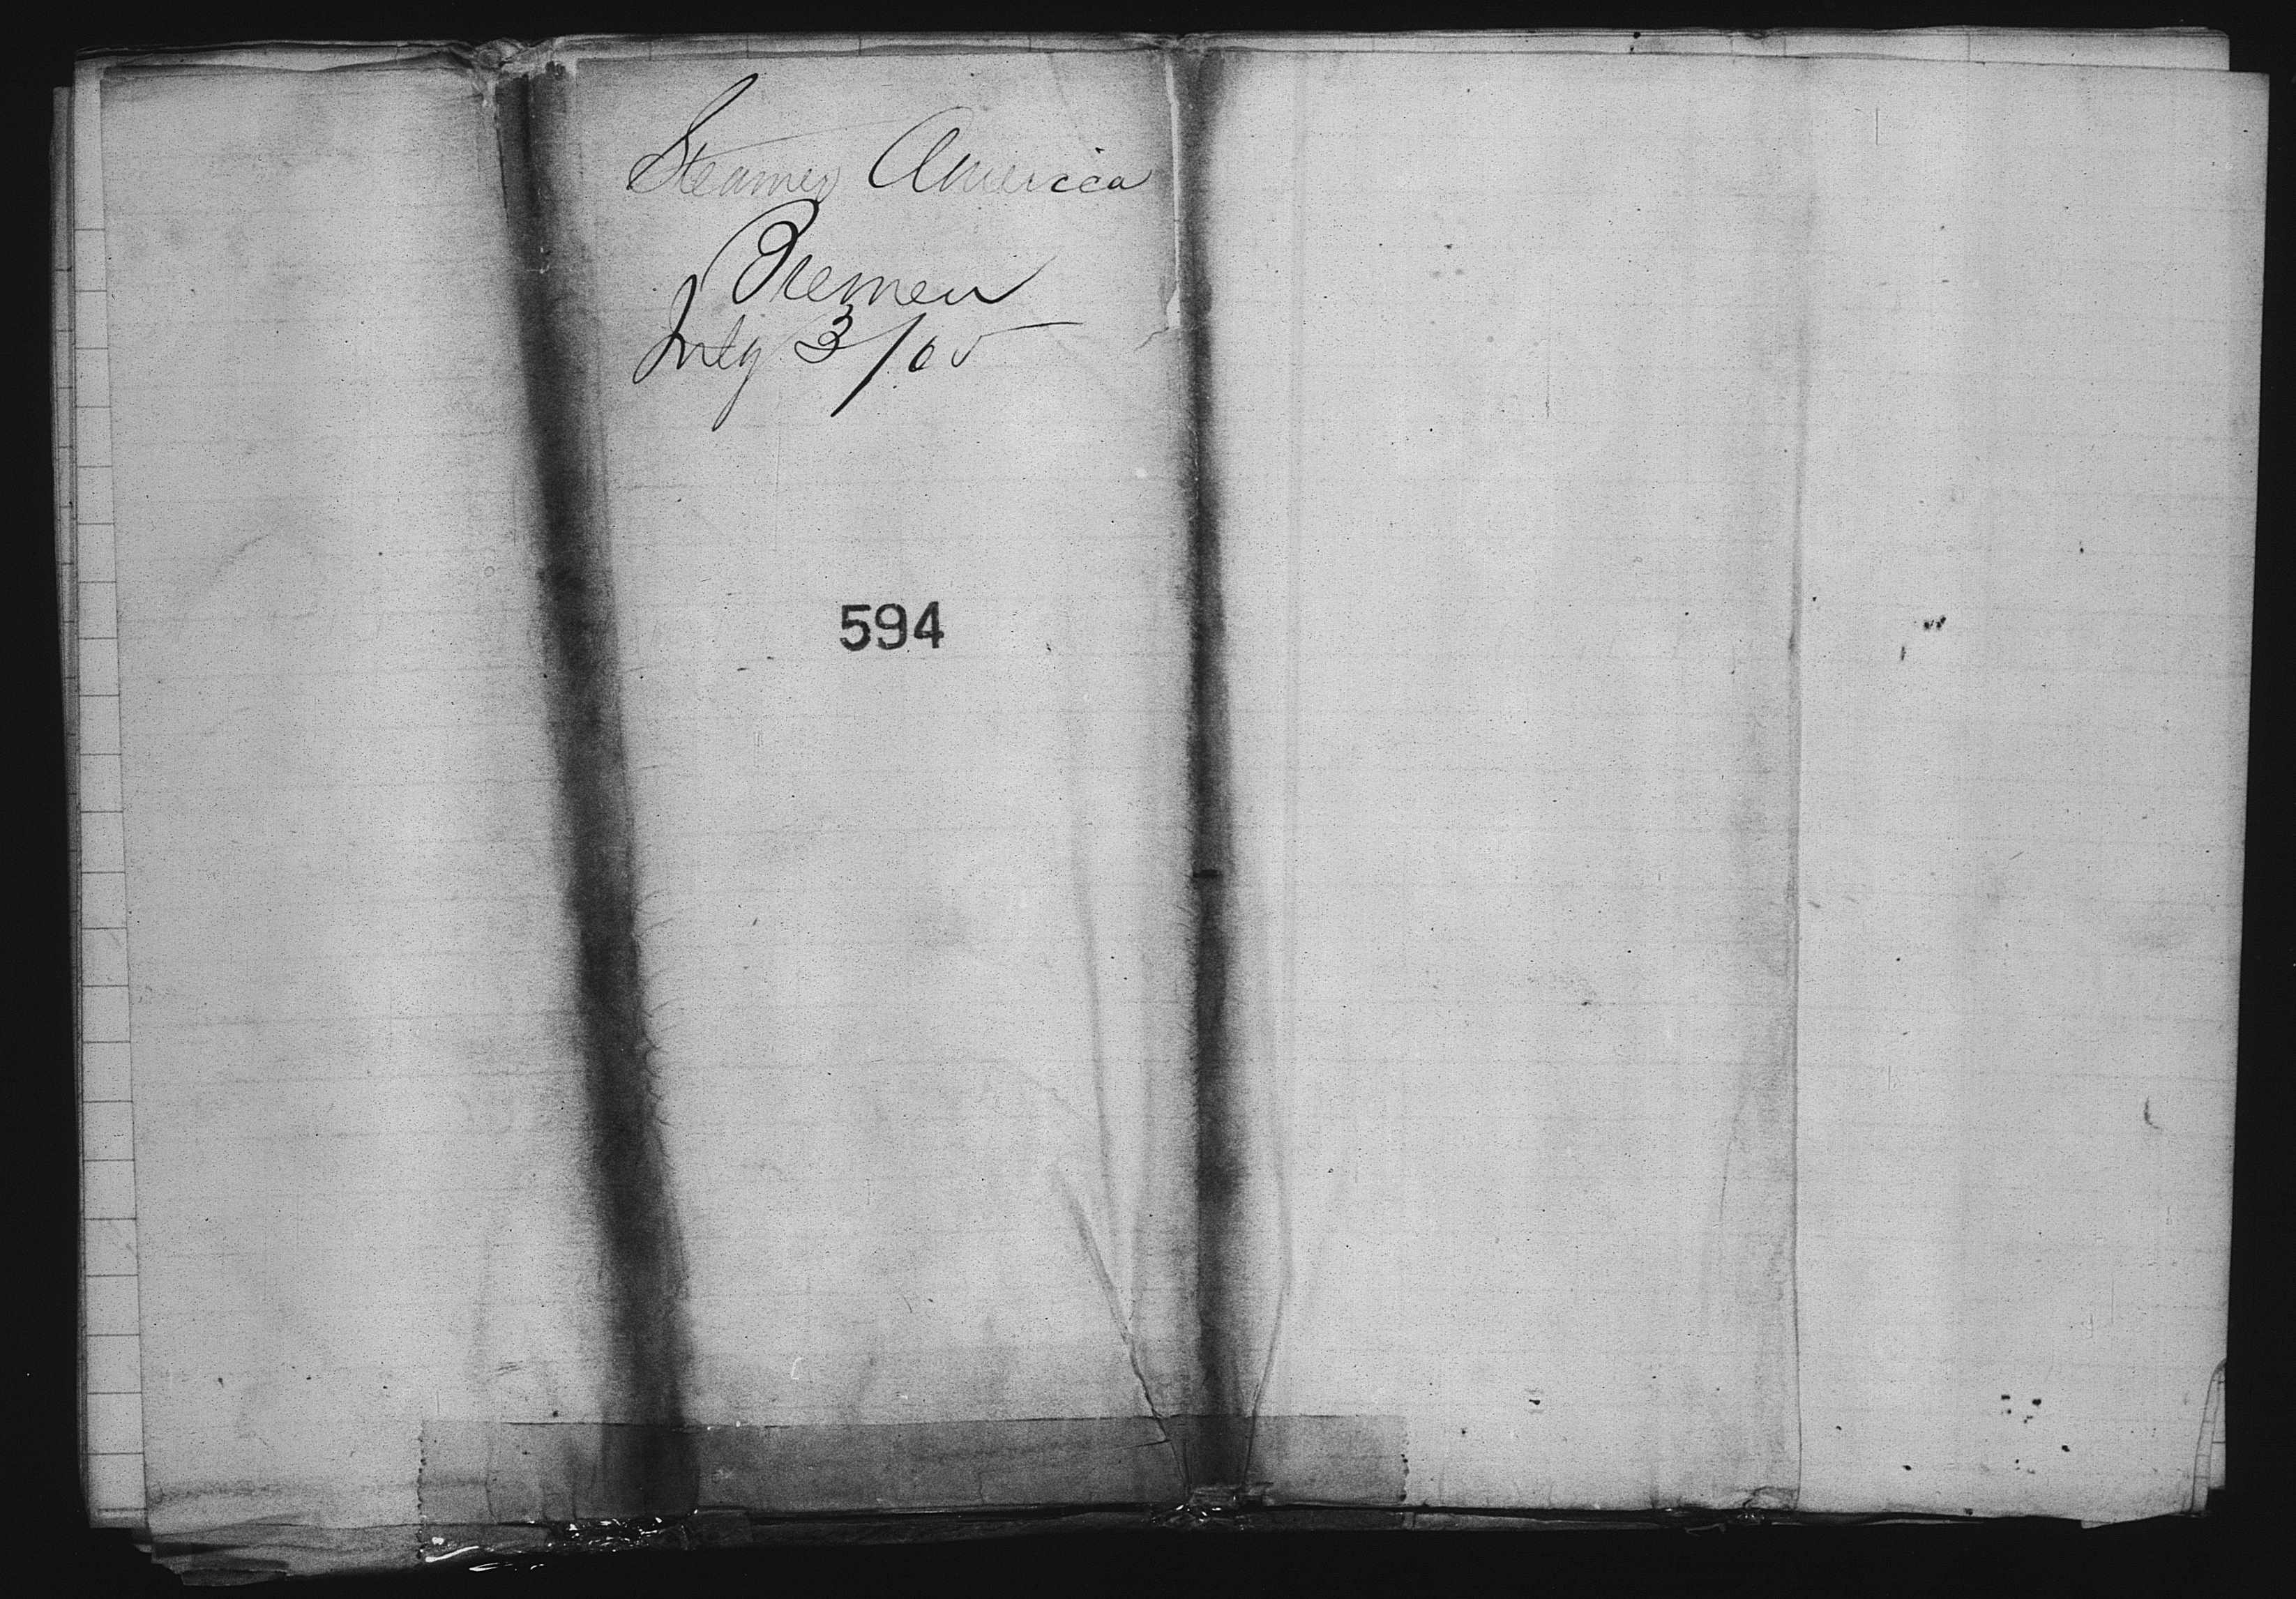 Steamer America
Bremen
July 3/65
594